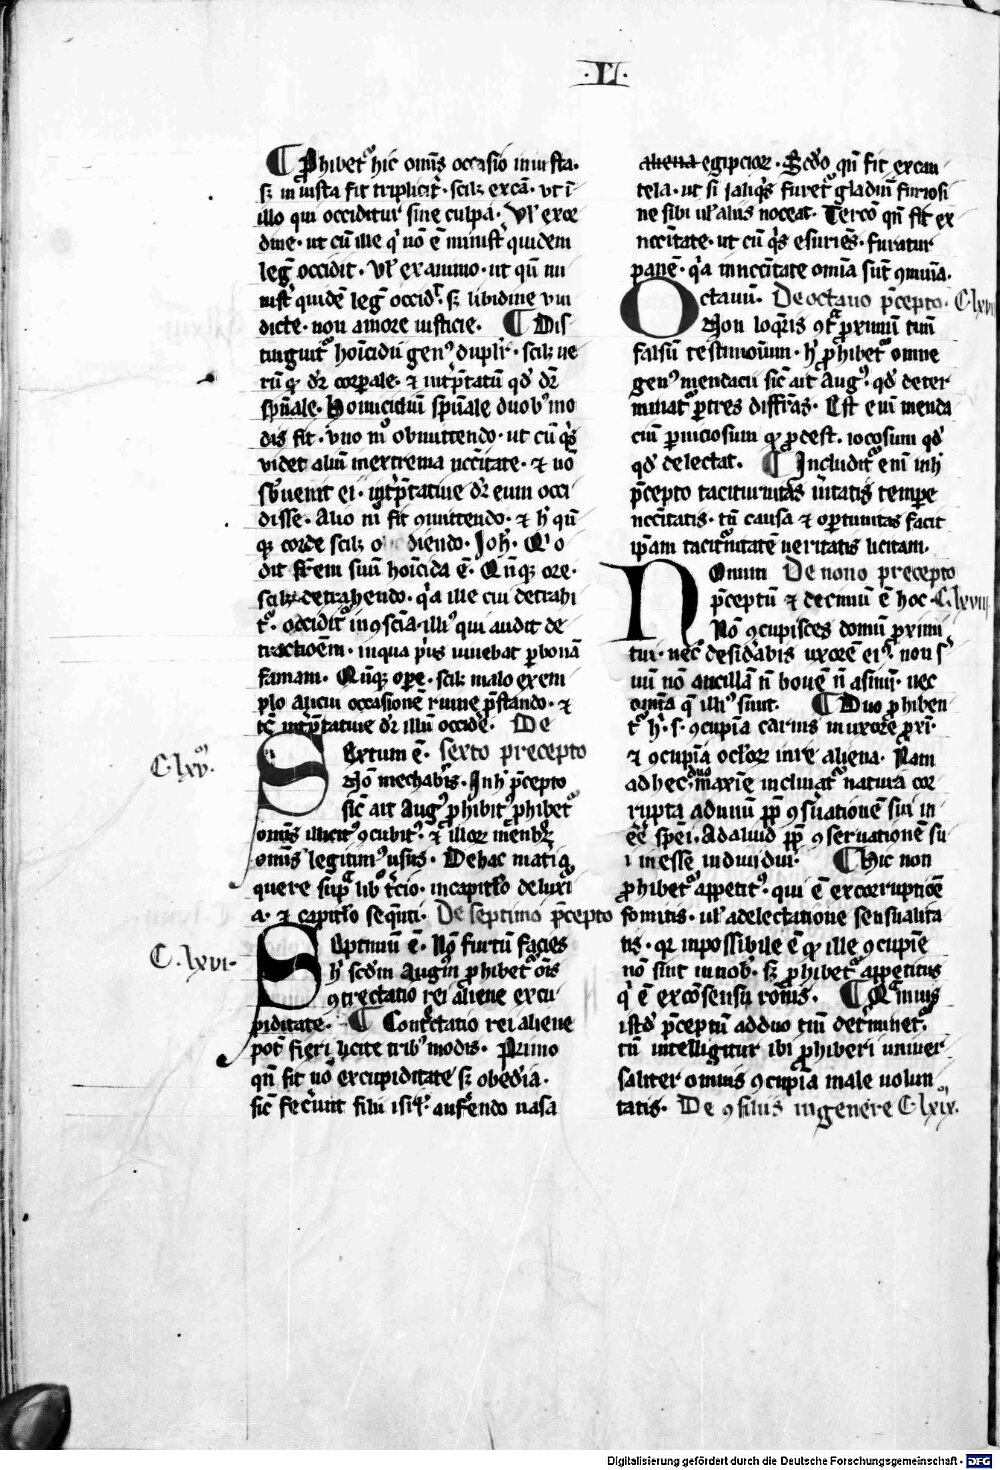 ·LI·
¶ Phibet᷒ hic om̅is occasio iniusta·
sꝫ iniusta fit triplicit̾· scilꝫ ex cā· ut ī
illo qui occiditur sine culpa· Vl̾ ex or
dine· ut cū ille q̾ nō ē minist̾ quidem
legē occidit· Vl̾ ex animo· ut qn̄ mi
nist̾ quidē legē occid̾· sꝫ libidine vin
dicte· non amore iusticie· ¶ Dis
tinguit᷒ hoīcidiī gen᷒ duplr̾· scilꝫ ue
rū qͥ dr̄ corꝑale· ⁊ int̾p̄tatū qd̾ dr̄
spūale· Homicidiū spūale duob᷒ mo
dis fit· vno m̊ obmittendo· ut cū qͥs
videt aliū in extrema nccītate· ⁊ nō
sb̾uenit ei· int̾p̄tatiue dr̄ eum occi
disse· Alio m̊ fit ꝯmittendo· ⁊ h̾ qn̄
qꝫ corde scilꝫ o diendo· Joh̄· Q̾ o
dit fr̄em suū hoīcida ē· Qn̄qꝫ ore·
scilꝫ detrahendo· q̾a ille cui detrahi
t᷒· occidit᷒ in ꝯscīa illi᷒ qui audit de
tractioēm· in qua p̾us uiuebat ꝑ bonā
famam· Qn̄qꝫ oꝑe· scilꝫ malo exem
plo alicui occasionē ruine p̄stando· ⁊
tc̄ int̾p̄tatiue dr̄ illū occide̾· De
Sextum ē· sexto precepto
C· lxv᷒·
Nō mechabis̾· In h̾ p̄cepto
sic̄ ait Aug᷒ ꝓhibit᷒ ꝓhibet᷒
om̄is illicit᷒ ꝯcubit᷒· ⁊ illoꝝ menbroꝝ
om̄is legitim᷒ usus· De hac mat̾ia
quere supͣ lib̾ t̾cio· in capitlo de luxͥi
a· ⁊ capitlo seqn̄ti· De septimo p̄cepto
Septimū ē· Nō furtū facies
C· lxvi·
h̾ scd̾m Augͥn ꝓhibet᷒ oīs
ꝯtrectatio rei aliene ex cu
piditate· ¶ Cont̾ctatio rei aliene
pot̄ fieri licite trib᷒ modis· Primo
qn̄ fit nō ex cupiditate sꝫ obed̾ia·
sic̄ fec̾unt filii isrl̾· auf̾endo uasa
aliena egipcioꝝ· Scd̾o qn̄ fit ex cau
tela· ut si aliqͥs furet᷒ gladiū furiosi
ne sibi ul̾ aliis noceat· Tercō qn̄ fit ex
nccītate· ut cū qͥs esuriēs· furatur
panē· q̾a in nccītate om̄ia sūt ꝯmuīa·
Octauū· De octauo p̄cepto· C· lxvii
Non loq̄ris ꝯtͣ ꝓximū tuū
falsū testimoīum· h̾ ꝓhibet᷒ omne
gen᷒ mendacii sic̄ ait Aug᷒· qd̾ deter
minat᷒ ꝑ tres diffr̄as· Est enī menda
ciū ꝑniciosum qͥ ꝓdest· iocosum qd̾
qd̾ delectat· ¶ Includit᷒ enī in h̾
p̄cepto taciturnitas u̾itatis tempe
nccītatis· tn̄ causa ⁊ oportunitas facit
ip̄am tacit᷒nitatē ueritatis licitam·
Nonum De nono precepto
p̄ceptū ⁊ decimū ē hoc· C· lxviii
Nō ꝯcupisces domū ꝓximi
tui· nec̄ desid̾abis uxorē ei᷒· non s̾
uū nō ancillā n̄ bouē n̄ asinū· nec
omīa q̄ illi᷒ sunt· ¶ Duo ꝓhiben
t᷒ h̾· s· ꝯcupīa carnis in uxorē ꝓxi̾·
⁊ ꝯcupīa ocl̾oꝝ in re aliena· Nam
ad hec duo maxīe inclinat᷒ natura cor
rupta ad unū ꝓꝑ ꝯs̾uationē sui in
eē spēi· Ad aliud ꝓꝑ ꝯseruationē su
i in esse indiuidui· ¶ Hic non
ꝓhibet᷒ appetit᷒· qui ē ex corruptiōe
fomitis· ul̾ a delectatione sensualita
tis· qꝛ inpossibile ē qͥ ille ꝯcupīe
nō sint in nob᷒· sꝫ ꝓhibet᷒ appetitus
qͥ ē ex cōsensu rōnis· ¶ Qͣmuis
istd̾ p̄ceptū ad duo tm̄ det̾minet᷒·
tn̄ intelligitur ibi ꝓhiberi uniuer
saliter omnis ꝯcupīa male uolun
tatis· De ꝯsiliis in genere C· lxix·
Digitalisierung gefördert durch die Deutsche Forschungsgemeinschaft - DFG